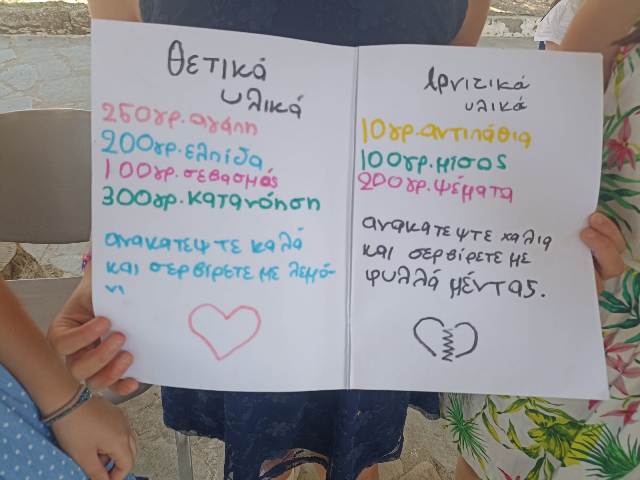 Θετικά
υλικά
250γρ. αγάπη
200γρ. ελπίδα
100γρ. σεβασμός
300γρ. κατανόηση
ανακατεψτε καλά
και σερβίρετε με λεμό-
νι
Αρνιτικά
υλικά
10γρ. αντιπάθια
100γρ. μίσος
200γρ. ψέματα
ανακατεψτε χαλια
και σερβίρετε με
φυλλά μέντας.